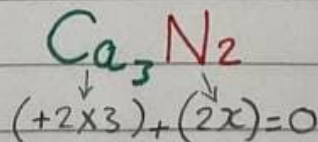 Ca₃N₂
(+2×3)+(2x)=0